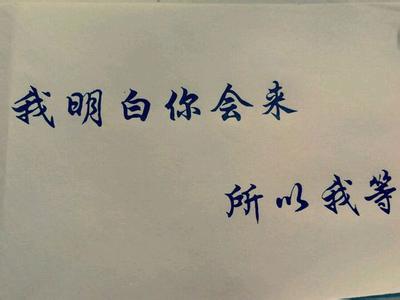 我明白你会来
所以我等